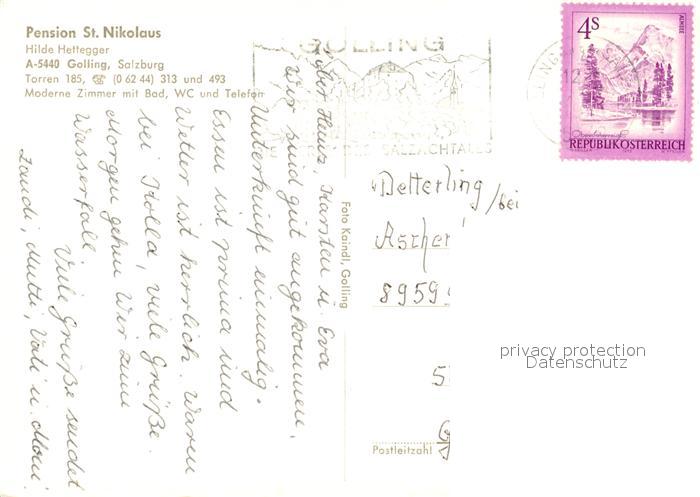 Pension St. Nikolaus
Hilde Hettegger
A-5440 Golling, Salzburg
Torren 185, ☎ (0 62 44) 313 und 493
Moderne Zimmer mit Bad, WC und Telefon
GOLLING
DES SALZACHTALES
4S
ALMSEE
Oberösterreich
REPUBLIK ÖSTERREICH
Heinz, Karsten u. Eva
Wir sind gut angekommen,
Unterkunft einmalig.
Essen ist prima und
Wetter ist herrlich. Waren
bei Kolla, viele Grüße.
Morgen gehn Wir zum
Wasserfall.
Viele Grüße sendet
Mutti, Vati u.
Foto Kaindl, Golling
Detterling/bei
Ascher
8959
5
Postleitzahl
privacy protection
Datenschutz